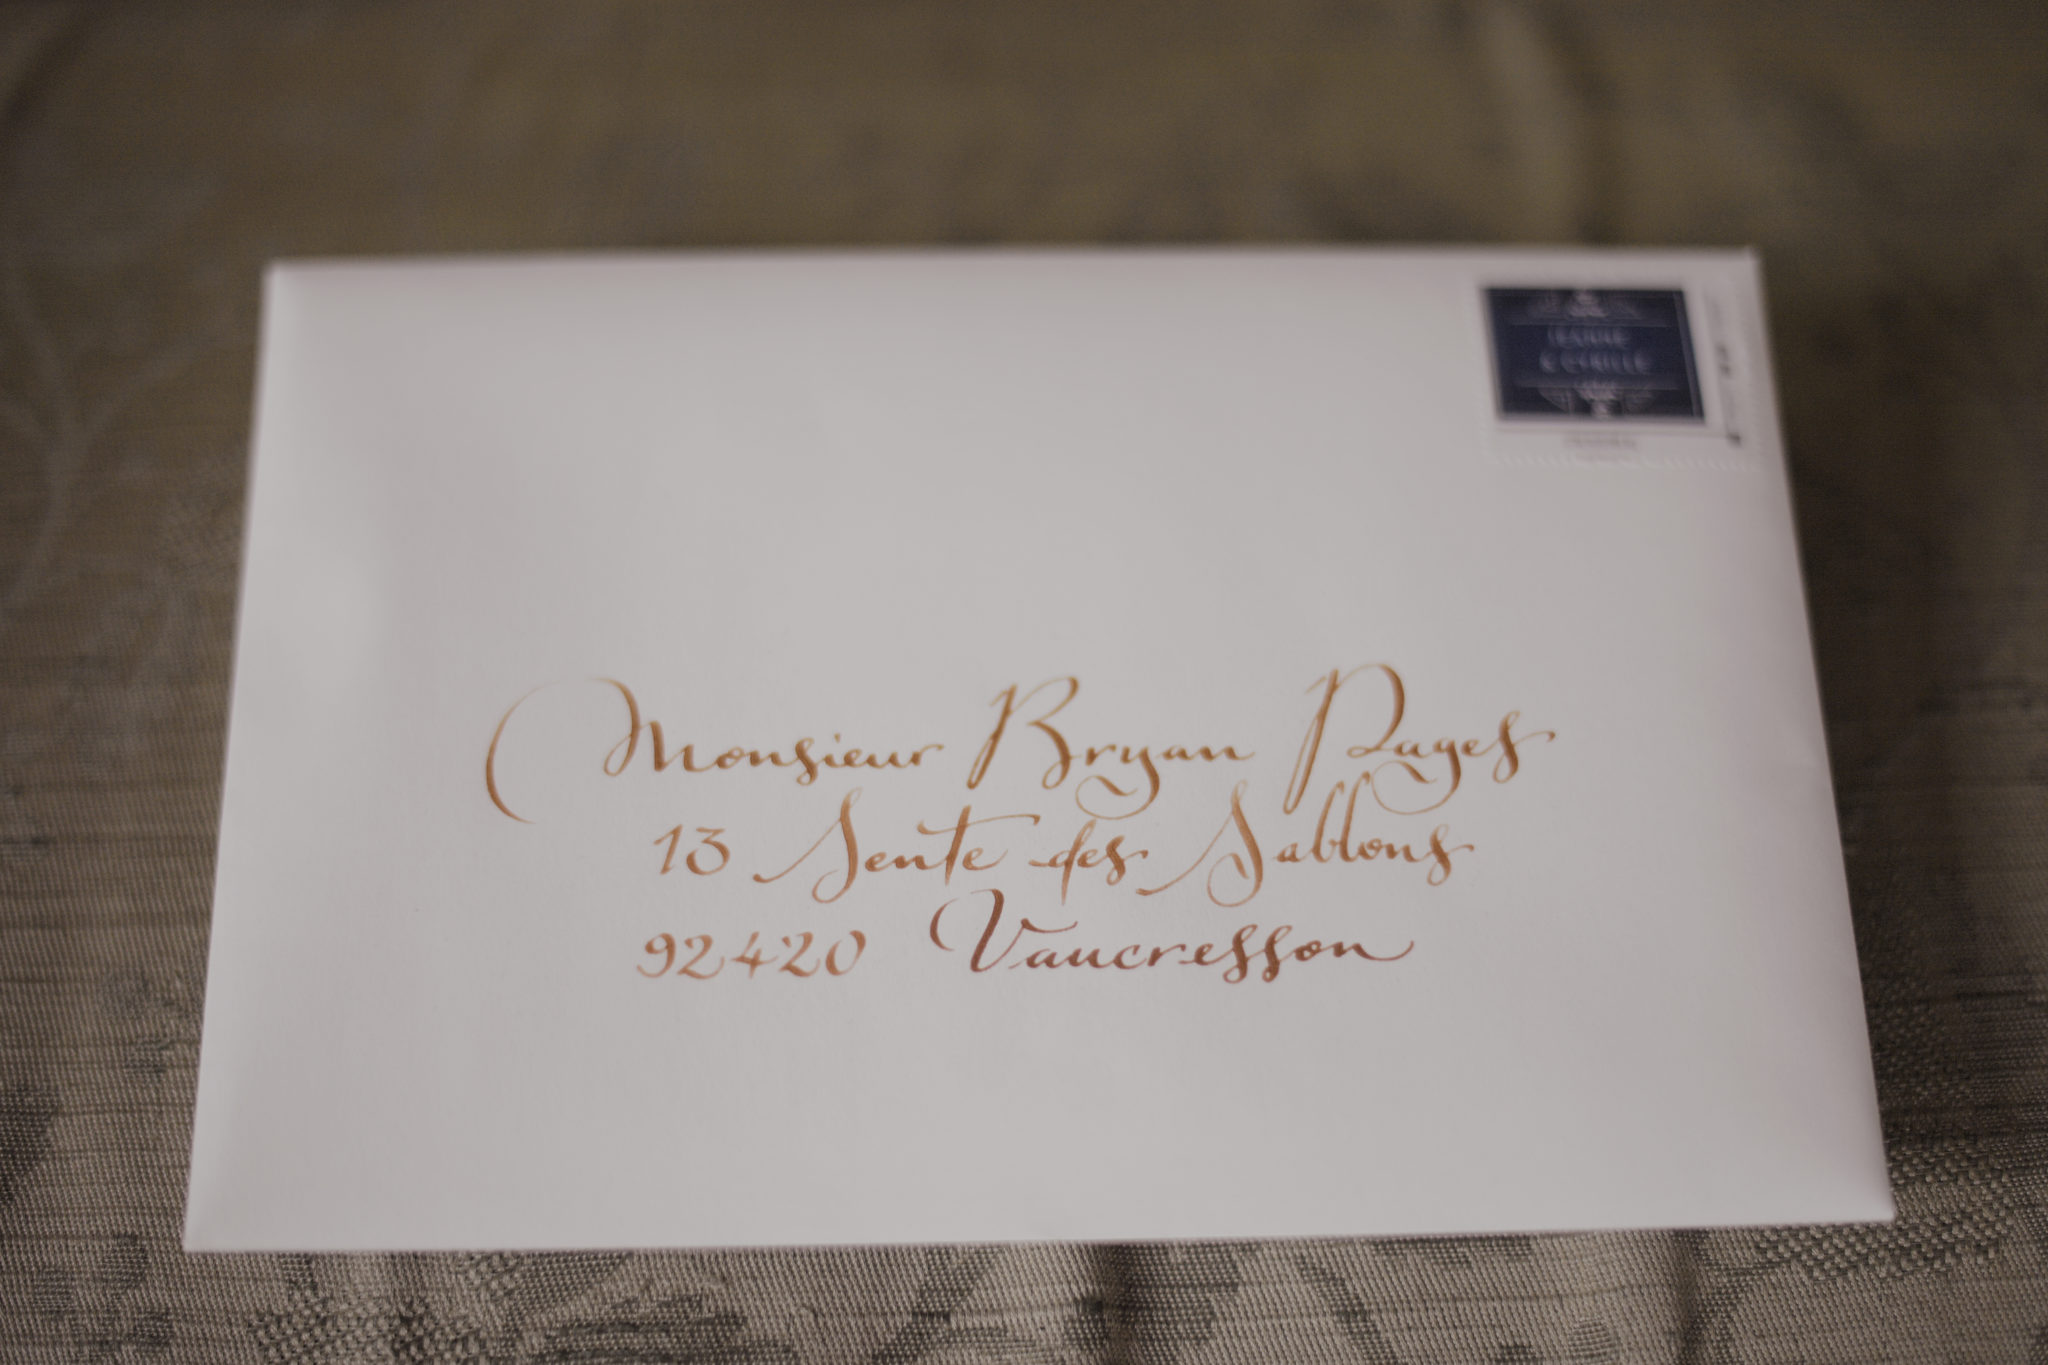 JEANNE
& CYRILLE
Monsieur Bryan Pages
13 Sente des Sablons
92420 Vaucresson